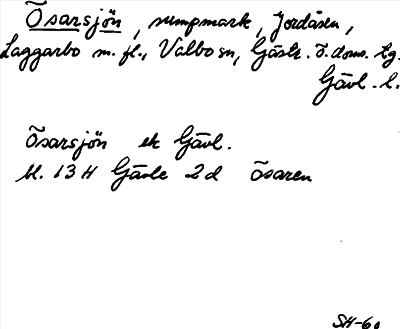 Ösarsjön, sumpmark, Jordåsen,
Laggarbo m. fl., Valbo sn, Gästr. ö. doms. hg.
Gävl. l.
Ösarsjön ek Gävl.
bl. 13 H Gävle 2 d Ösaren
SH-60